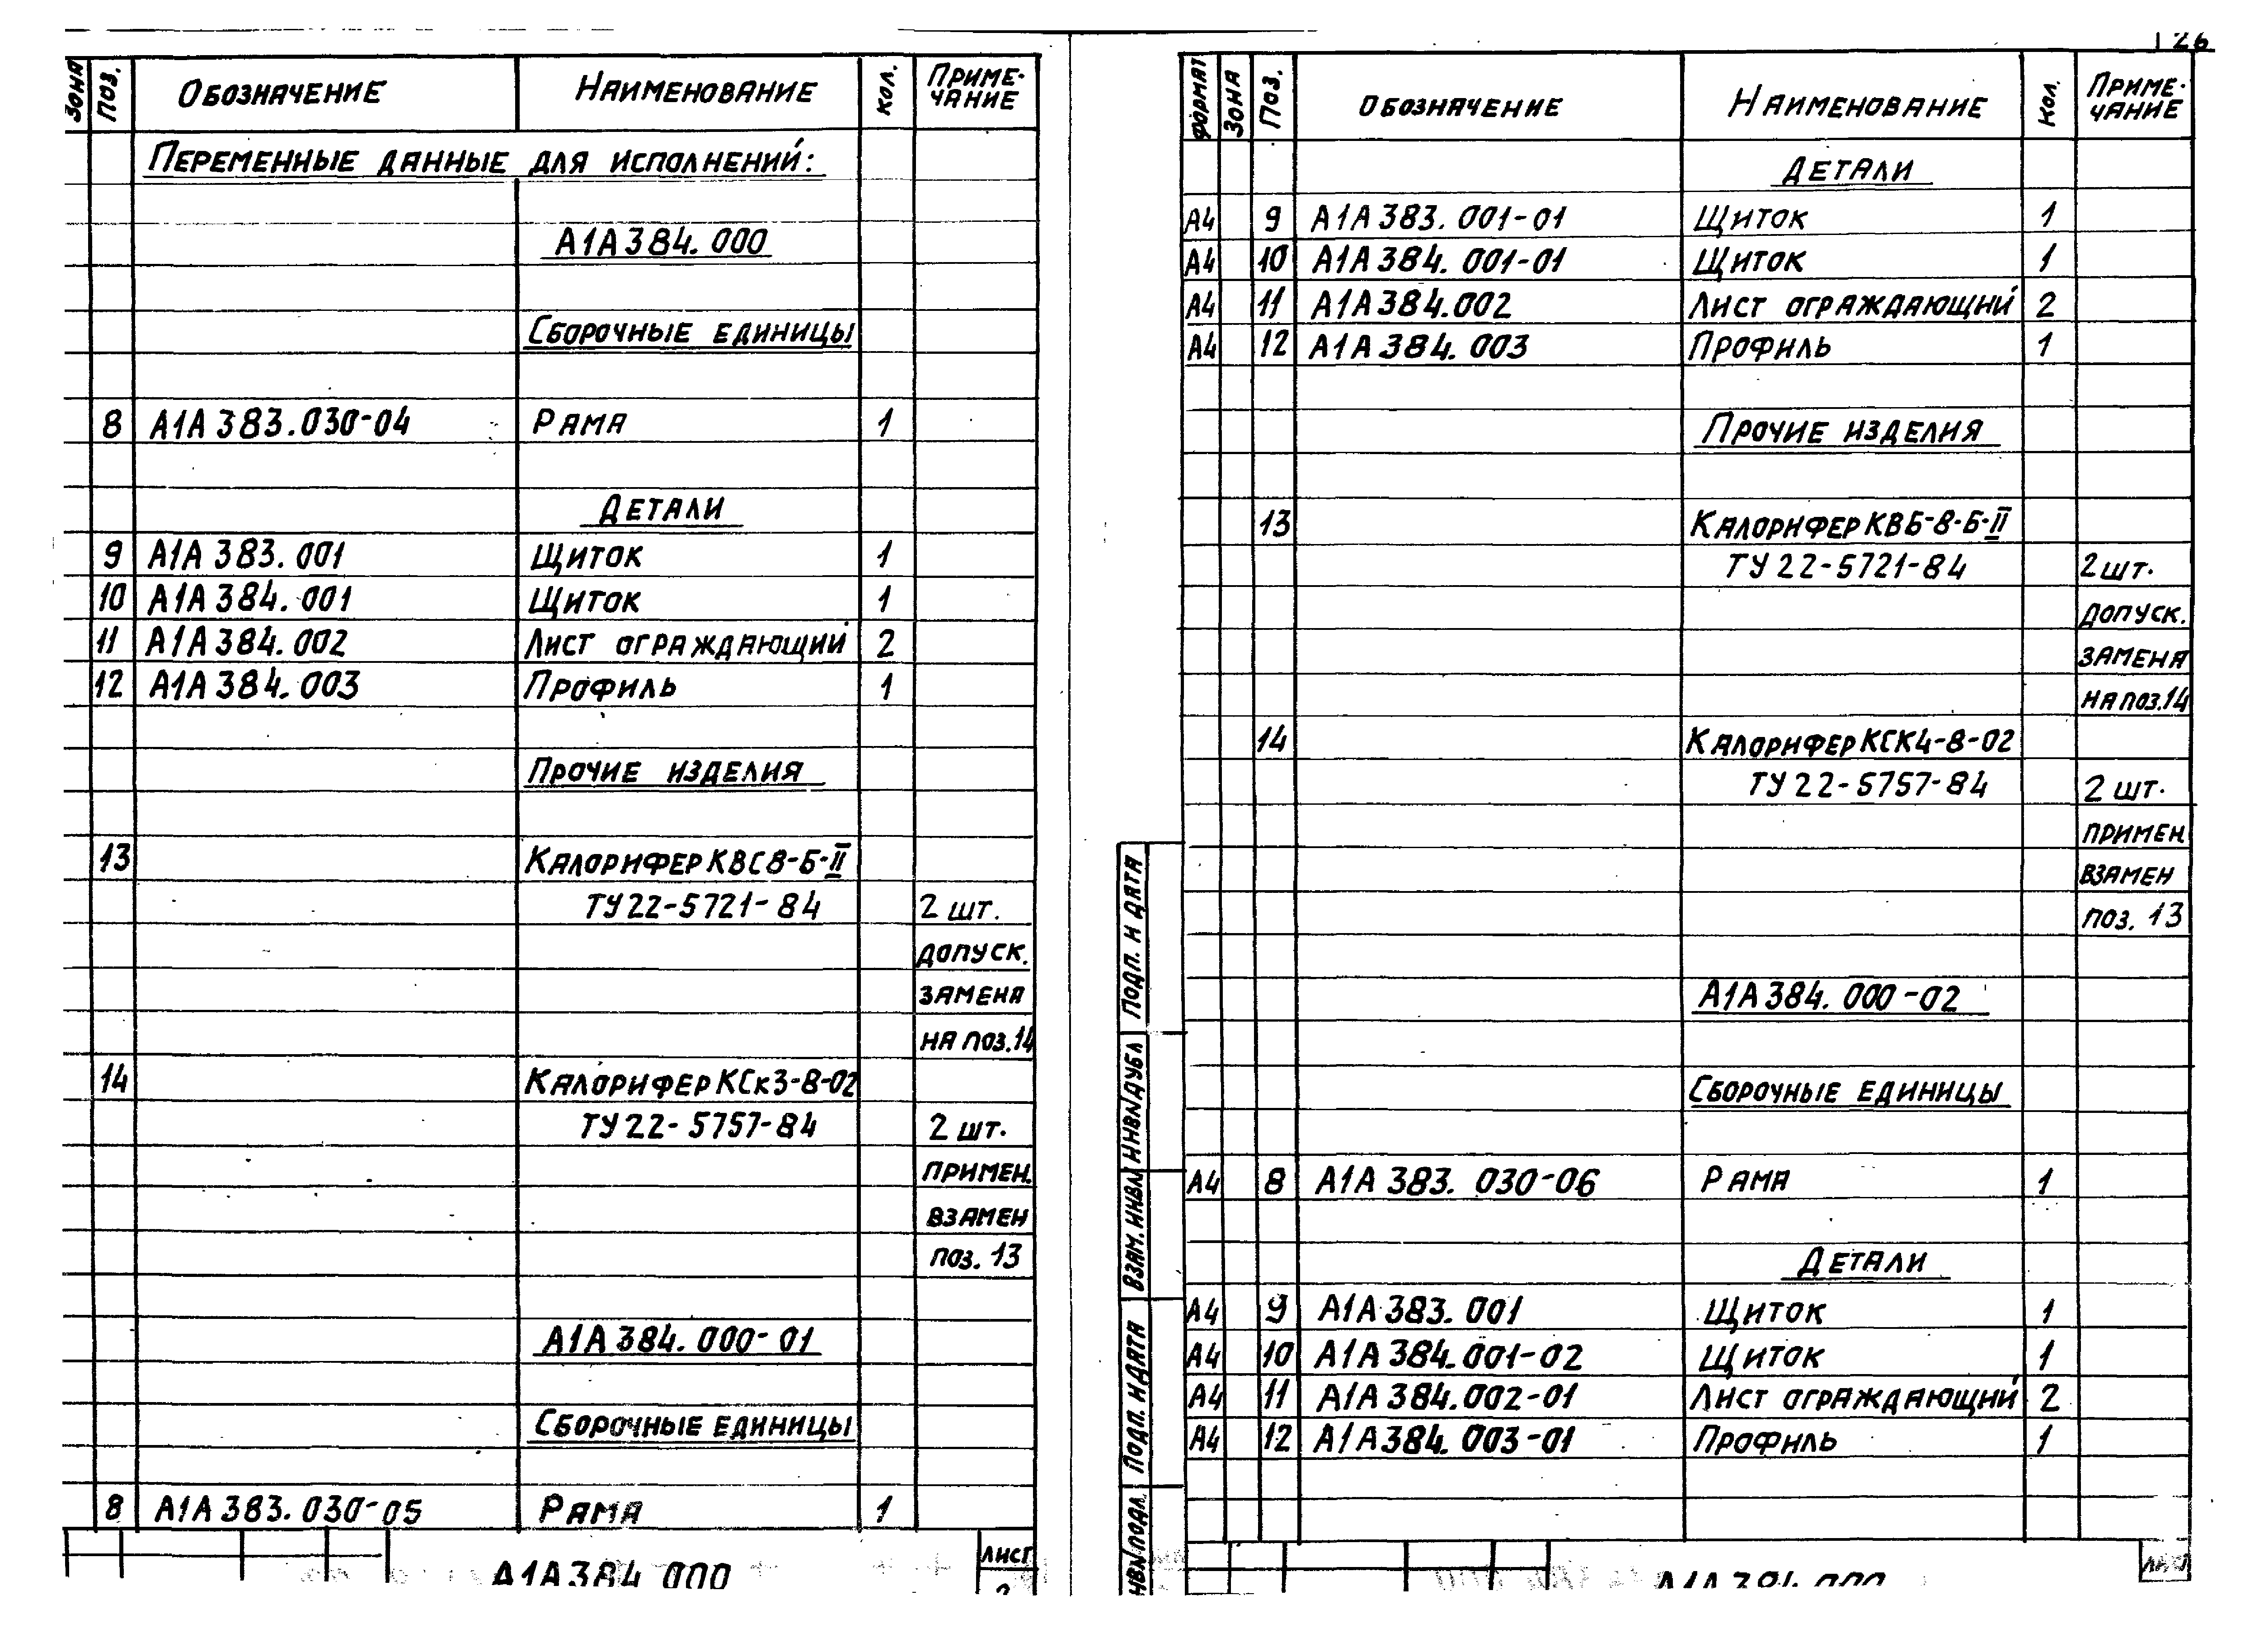 126
Зона Поз. Обозначение Наименование Кол. Приме-
чание
Переменные данные для исполнений:
А1А384.000
Сборочные единицы
8 А1А383.030-04 Рама 1
Детали
9 А1А383.001 Щиток 1
10 А1А384.001 Щиток 1
11 А1А384.002 Лист ограждающий 2
12 А1А384.003 Профиль 1
Прочие изделия
13 Калорифер КВС8-Б-II
ТУ22-5721-84 2 шт.
допуск.
замена
на поз.14
14 Калорифер КСк3-8-02
ТУ22-5757-84 2 шт.
примен.
взамен
поз. 13
А1А384.000-01
Сборочные единицы
8 А1А383.030-05 Рама 1
А1А384.000 Лист
Формат Зона Поз. Обозначение Наименование Кол. Приме-
чание
Детали
А4 9 А1А383.001-01 Щиток 1
А4 10 А1А384.001-01 Щиток 1
А4 11 А1А384.002 Лист ограждающий 2
А4 12 А1А384.003 Профиль 1
Прочие изделия
13 Калорифер КВБ-8-Б-II
ТУ22-5721-84 2 шт.
допуск.
замена
на поз.14
14 Калорифер КСК4-8-02
ТУ22-5757-84 2 шт.
примен.
взамен
поз. 13
А1А384.000-02
Сборочные единицы
А4 8 А1А383.030-06 Рама 1
Детали
А4 9 А1А383.001 Щиток 1
А4 10 А1А384.001-02 Щиток 1
А4 11 А1А384.002-01 Лист ограждающий 2
А4 12 А1А384.003-01 Профиль 1
Подп. и дата
Инв№дубл
Взам.инв№
Подп. и дата
Инв№подл.
А1А384.000